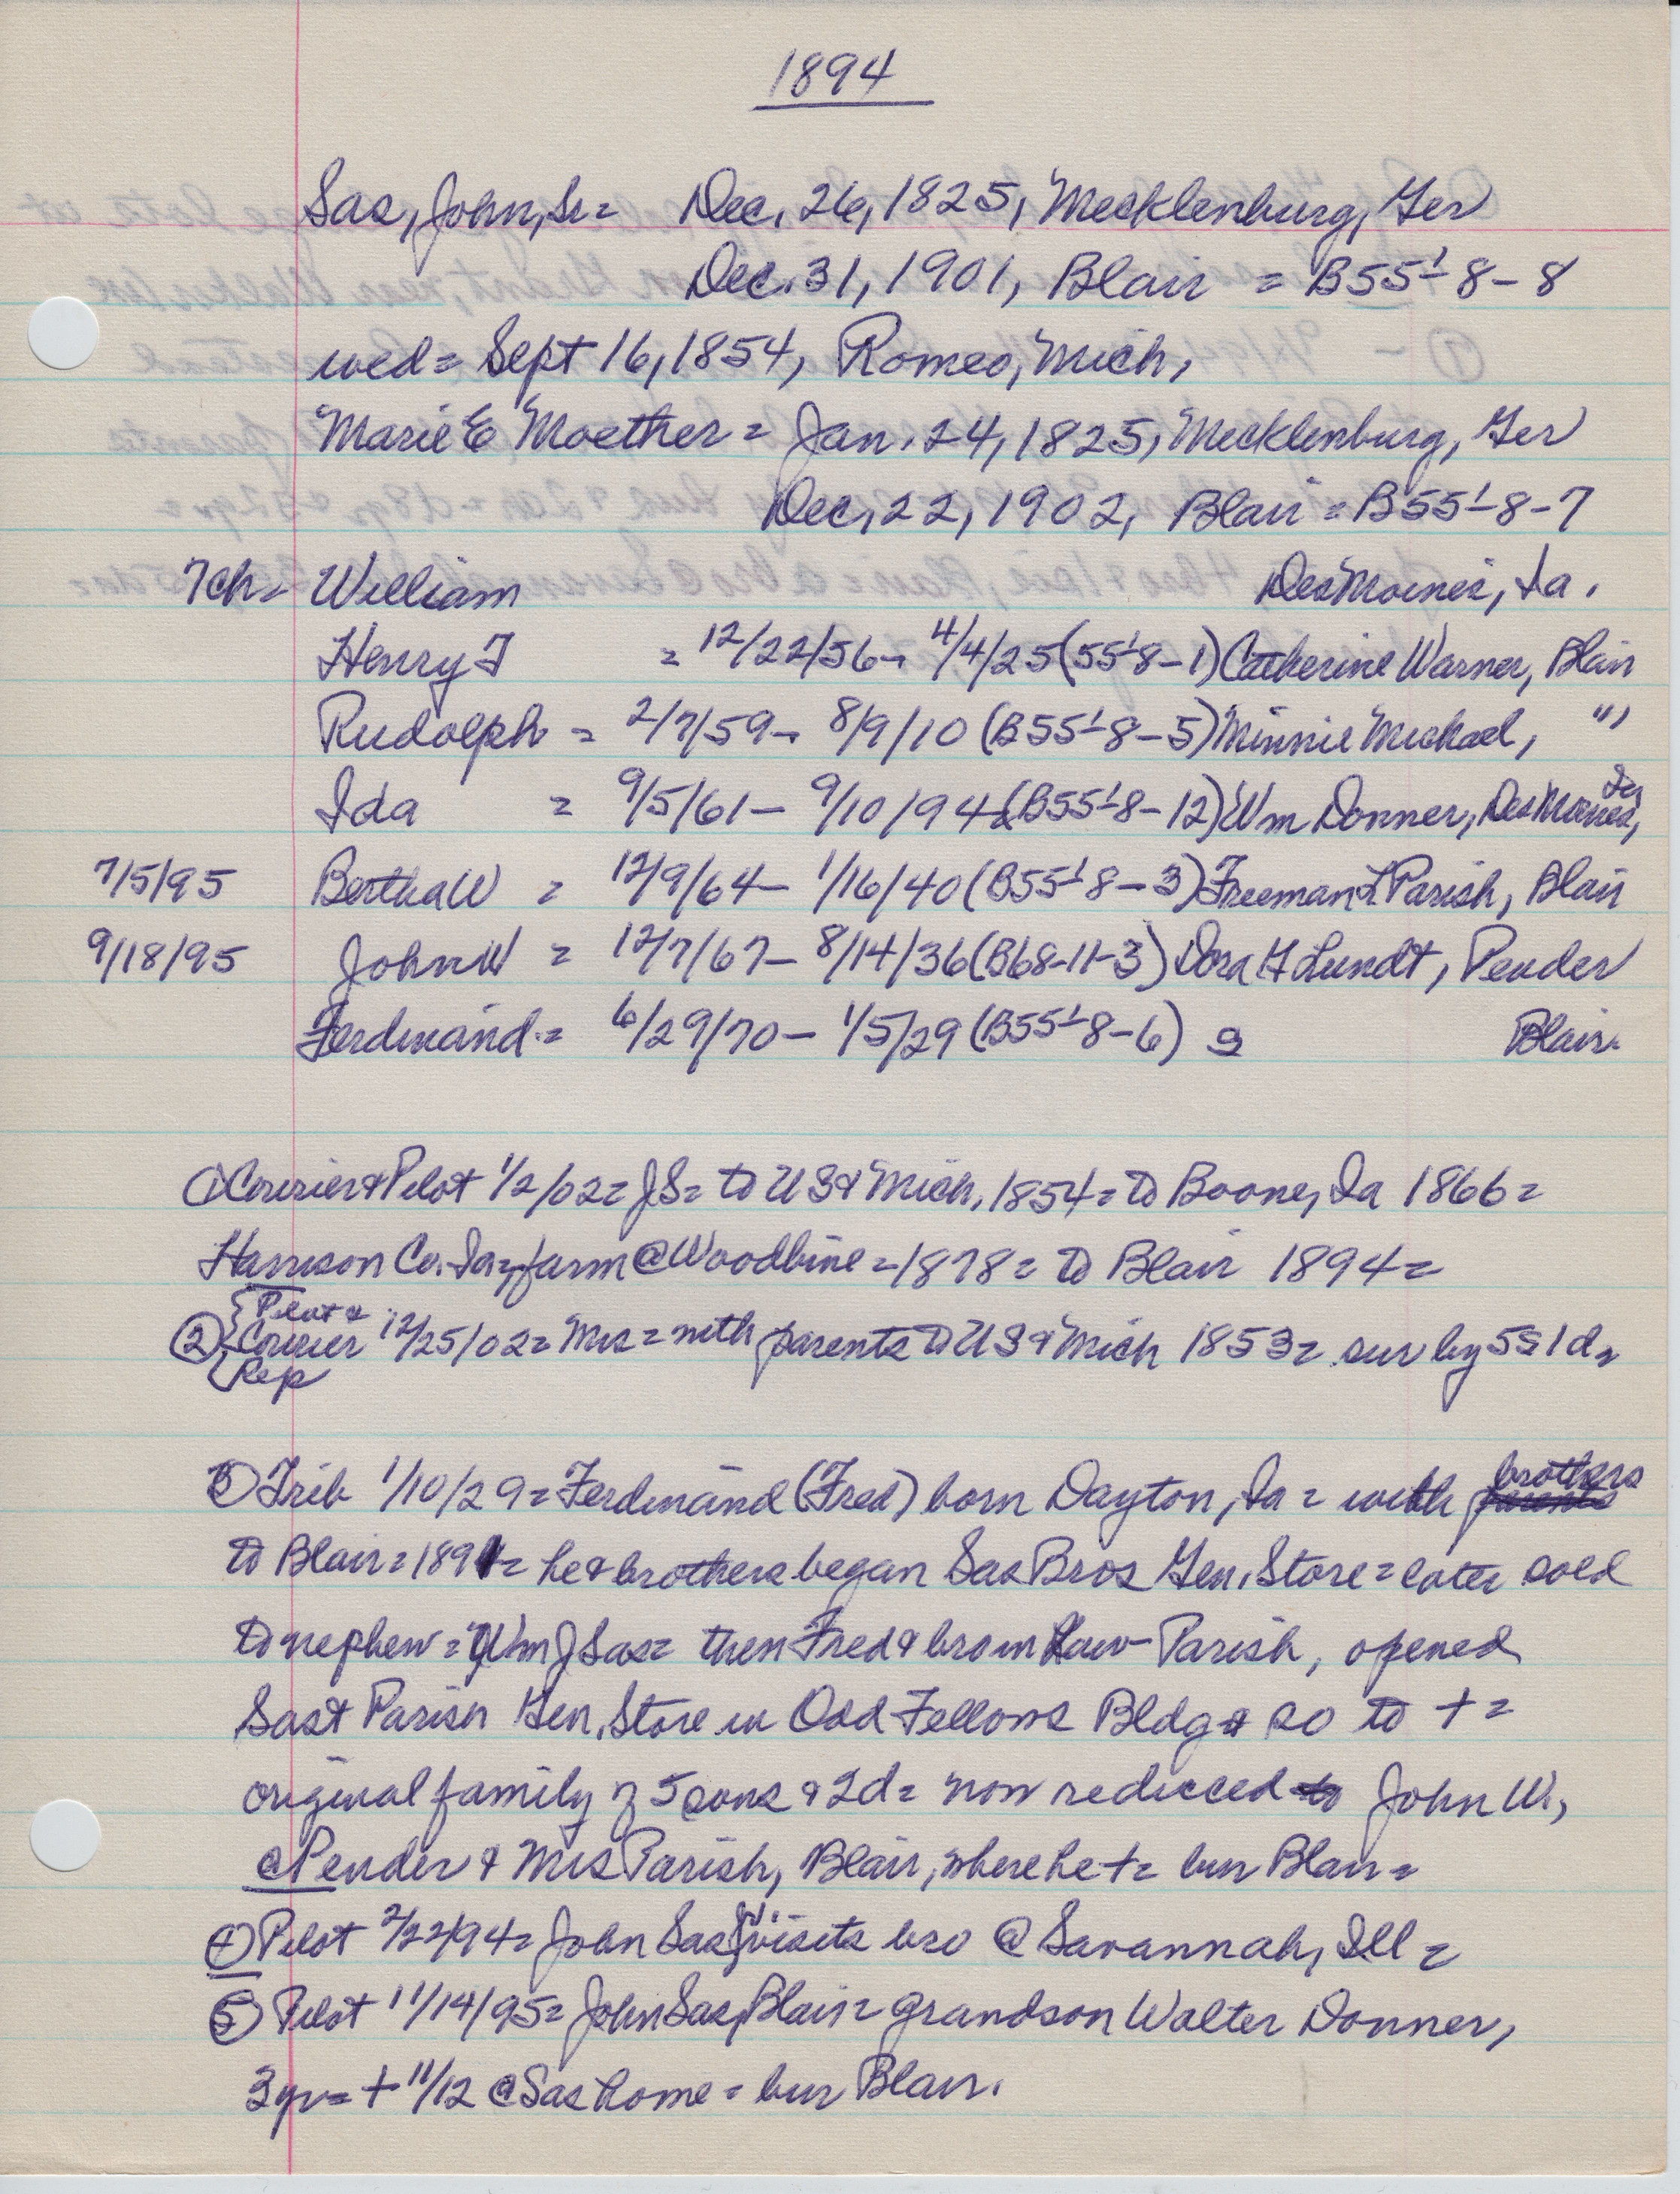 1894
Sas, John, Sr = Dec. 26, 1825, Mecklenburg, Ger
Dec. 31, 1901, Blair = B55'-8-8
wed = Sept 16, 1854, Romeo, Mich,
Marie E Moether = Jan. 24, 1825, Mecklenburg, Ger
Dec. 22, 1902, Blair = B55'-8-7
7ch = William Des Moines, Ia.
Henry F = 12/22/56 - 4/4/25 (55'8-1) Catherine Warner, Blair
Rudolph = 2/7/59 - 8/9/10 (B55'-8-5) Minnie Michael, "
Ida = 9/5/61 - 9/10/94 (B55'-8-12) Wm Donner, Des Moines,
7/5/95 Bertha W = 12/9/64 - 1/16/40 (B55'8-3) Freeman L Parish, Blair
9/18/95 John W = 12/7/67 - 8/14/36 (B68-11-3) Dora H Lundt, Pender
Ferdinand = 6/29/70 - 1/5/29 (B55'-8-6) S Blair.
① Courier & Pilot 1/2/02 = JS = to US & Mich. 1854 = to Boone, Ia 1866 =
Harrison Co. Ia = farm @ Woodbine = 1878 = to Blair 1894 =
Pilot &
② Courier 12/25/02 = Mrs = with parents to US & Mich 1853 = sur by 5s 1d =
Rep
③ Trib 1/10/29 = Ferdinand (Fred) born Dayton, Ia = with parents brothers
to Blair = 1891 = he & brothers began Sas Bros Gen. Store = later sold
to nephew = Wm J Sas = then Fred & bro in Law - Parish, opened
Sas & Parish Gen. Store in Odd Fellows Bldg & so to + =
original family of 5 sons & 2d = now reduced to John W.,
@ Pender & Mrs Parish, Blair, where he + = bur Blair =
④ Pilot 2/22/94 = John Sas visits bro @ Savannah, Ill =
⑤ Pilot 11/14/95 = John Sas, Blair = grandson Walter Donner,
3yr = + 11/12 @ Sas home = bur Blair.